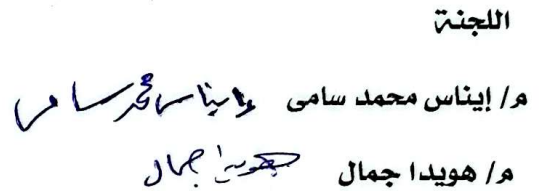 اللجنة
م/ إيناس محمد سامى إيناس محمد سامى
م/ هويدا جمال هويدا جمال